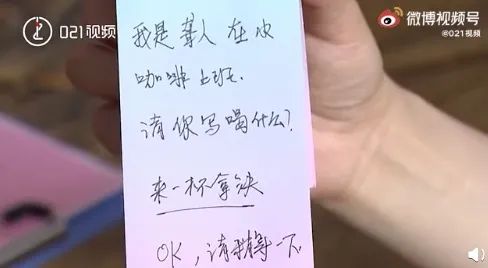 021视频
微博视频号
@021视频
我是聋人在
咖啡上班.
请你写喝什么?
来一杯拿铁
OK,请稍等一下